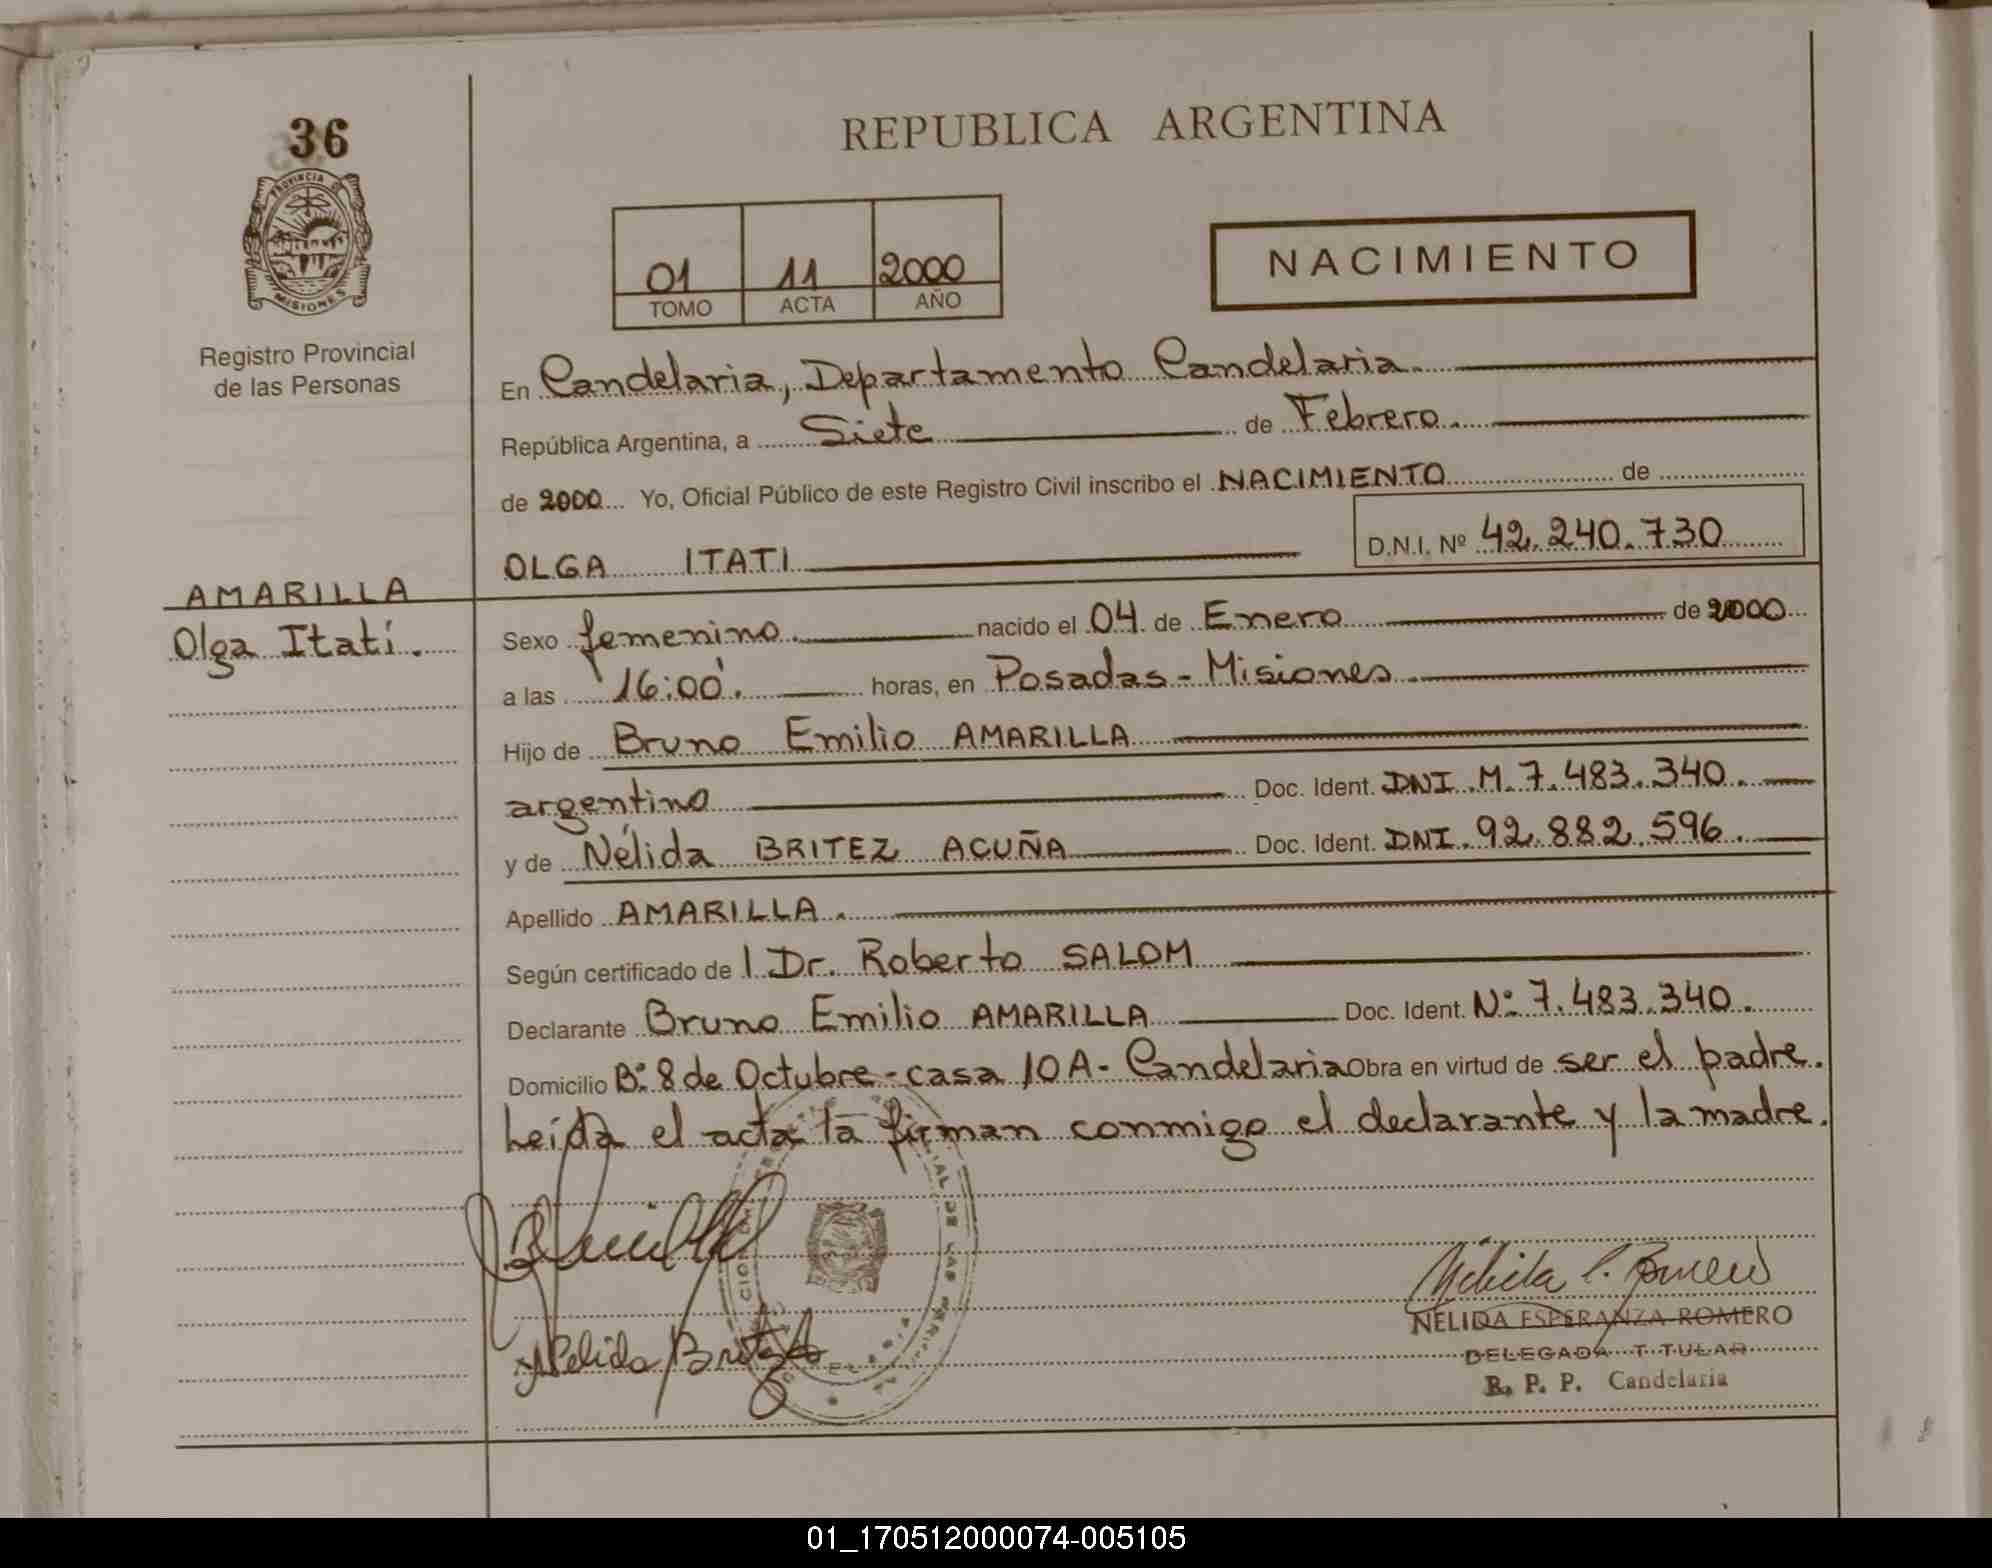 36
PROVINCIA DE
MISIONES
Registro Provincial
de las Personas
AMARILLA
Olga Itatí.
REPUBLICA ARGENTINA
01 11 2000
TOMO ACTA AÑO
NACIMIENTO
En Candelaria, Departamento Candelaria.
República Argentina, a Siete de Febrero.
de 2000 Yo, Oficial Público de este Registro Civil inscribo el NACIMIENTO de
OLGA ITATI D.N.I. Nº 42.240.730
Sexo femenino. nacido el 04 de Enero de 2000
a las 16:00. horas, en Posadas - Misiones.
Hijo de Bruno Emilio AMARILLA
argentino Doc. Ident. DNI. M. 7.483.340.
y de Nélida BRITEZ ACUÑA Doc. Ident. DNI. 92.882.596.
Apellido AMARILLA.
Según certificado de l Dr. Roberto SALOM
Declarante Bruno Emilio AMARILLA Doc. Ident. Nº 7.483.340.
Domicilio Bº 8 de Octubre - casa 10 A - Candelaria Obra en virtud de ser el padre.
Leída el acta la firman conmigo el declarante y la madre.
Nelida Britez A
NELIDA ESPERANZA ROMERO
DELEGADA TITULAR
R. P. P. Candelaria
01_170512000074-005105